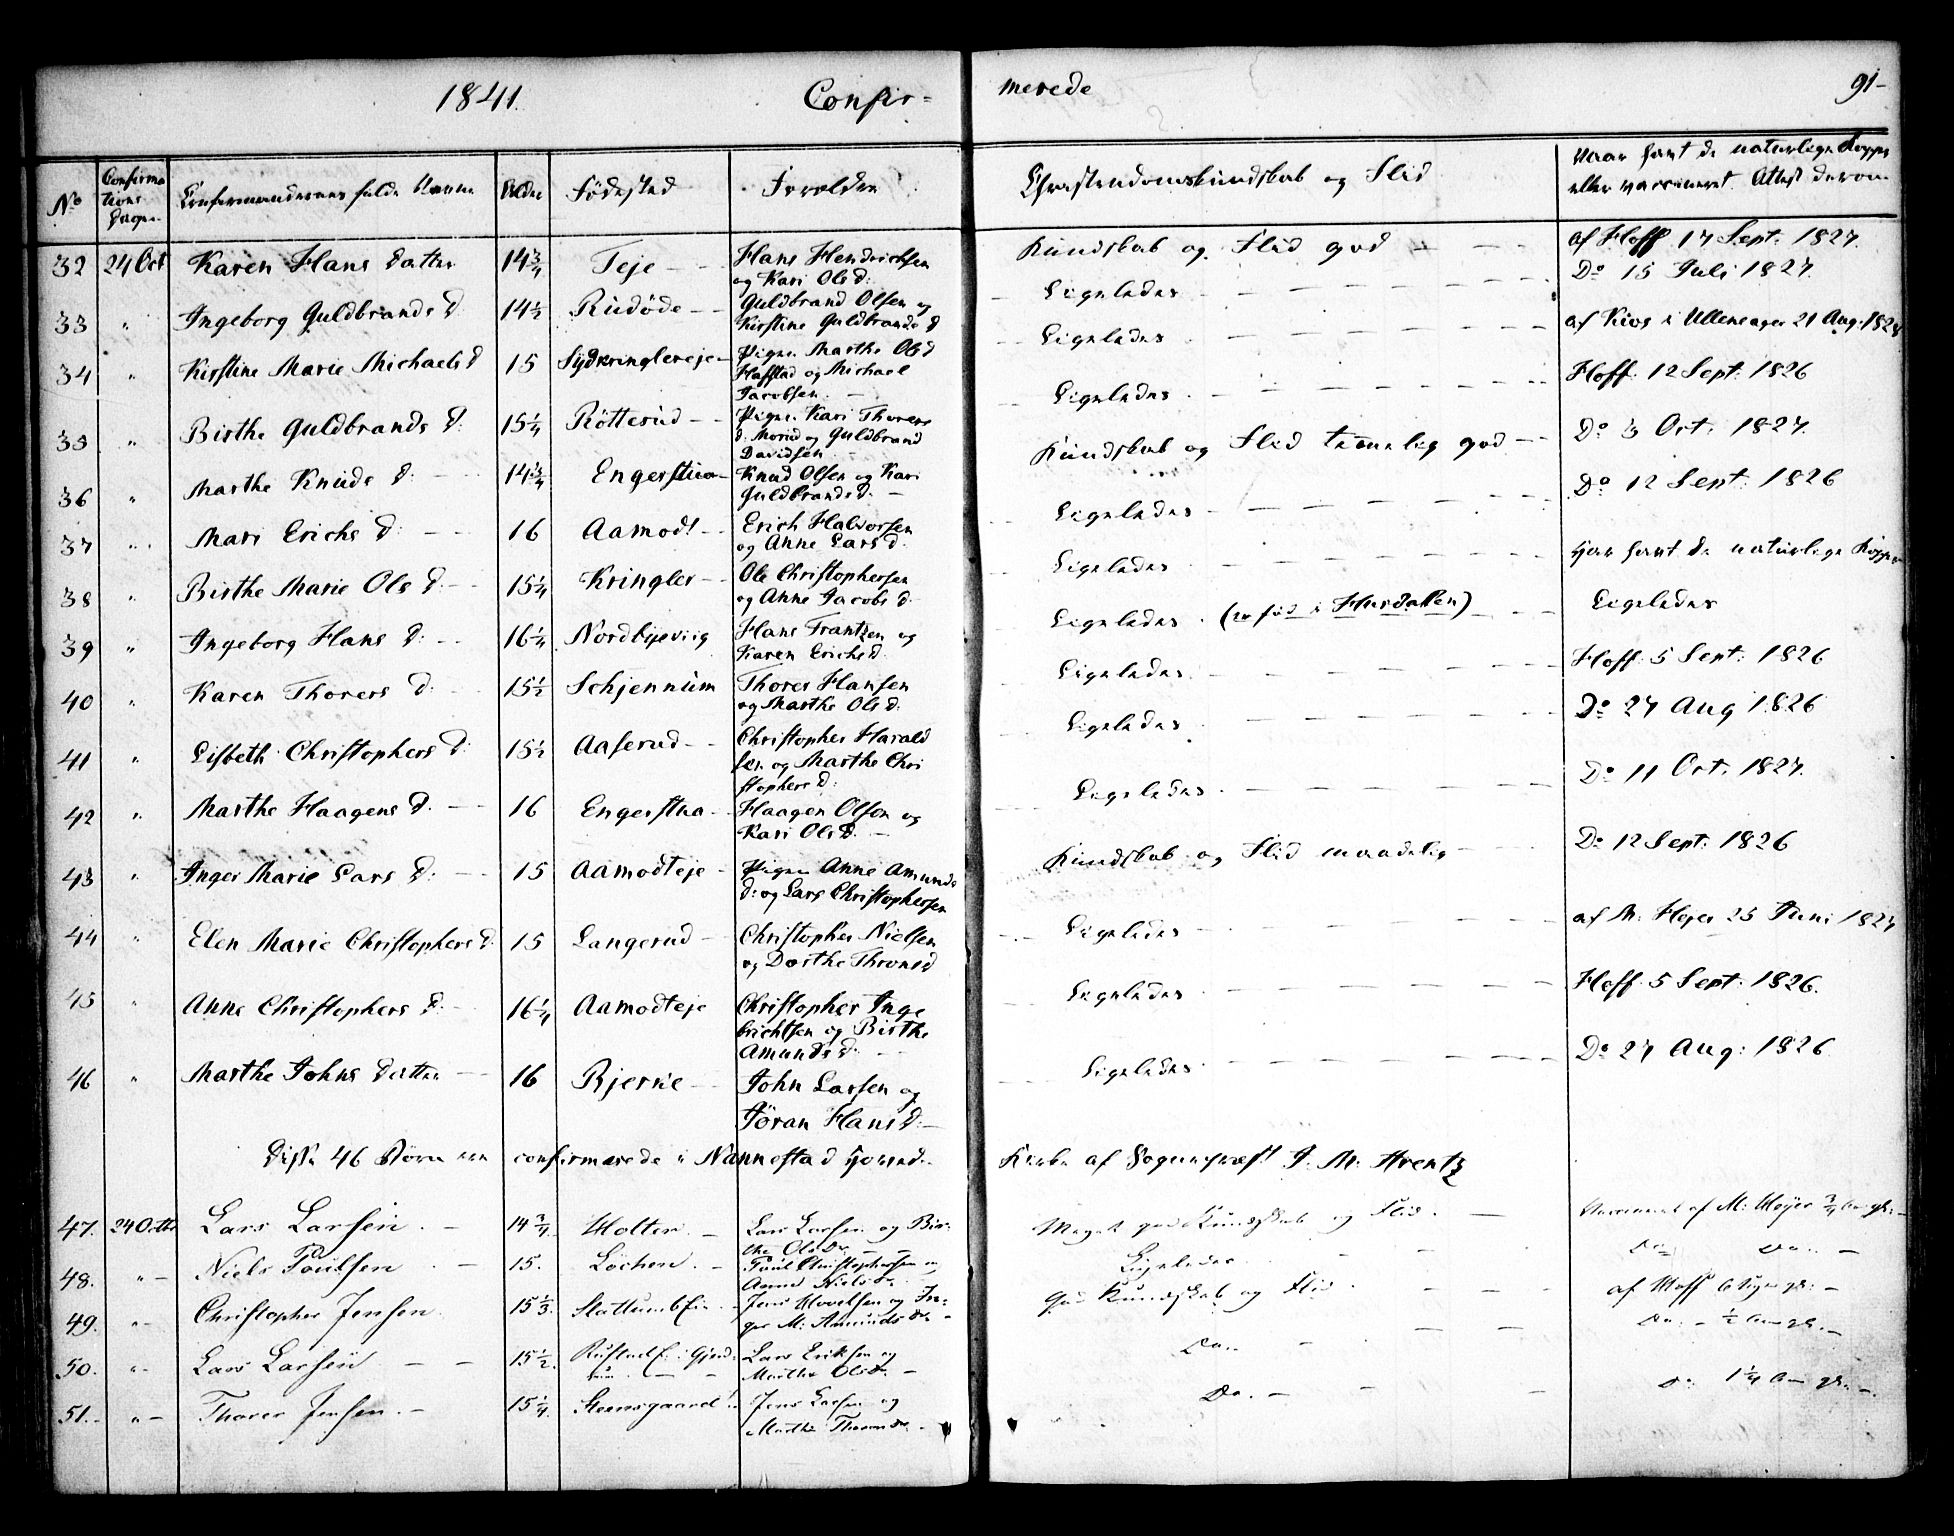 1841. Confir= merede 91-
No Confirmations Dagen Confirmandernes fulde Navne Alder Födested Forældre Christendomskundskab og Flid Naar havt de naturlige Kopper
eller vaccineret. Attest derom
32 24 Oct Karen Hans datter 14 3/4 Teje - - Hans Hendrichsen
og Kari Ols d: Kundskab og Flid god af Hoff 17 Sept: 1827.
33 " Ingeborg Guldbrands d: 14 1/2 Rudöde - - Guldbrand Olsen og
Kirstine Guldbrands d Ligeledes Do 15 Juli 1827.
34 " Kirstine Marie Michaels d 15 Sydkringlereje - Pigen Marthe Ols d
Haffstad og Michael
Jacobsen. Ligeledes af Kios i Ullensager 21 Aug: 182
35 " Birthe Guldbrands d: 15 1/4 Rötterud - - Pigen Kari Thorers
d: Morud og Guldbrand
Davidsen Ligeledes Hoff: 12 Sept: 1826
36 " Marthe Knuds d: 14 3/4 Engerstua - Knud Olsen og Kari
Guldbrands d: Kundskab og Flid temelig god Do 3 Oct: 1827.
37 " Mari Erichs d: 16 Aamodt - Erich Halvorsen
og Anne Lars d: Ligeledes Do 12 Sept: 1826
38 " Birthe Marie Ols d: 15 1/4 Kringler - Ole Christophersen
og Anne Jacobs d: Ligeledes har havt de naturlige Kopper
39 " Ingeborg Hans d: 16 1/4 Nordbyevig Hans Frantzen og
Karen Erichs d: Ligeledes. (er föd i Hurdallen) Ligeledes
40 " Karen Thorers d: 15 1/2 Schjennum Thorer Hansen
og Marthe Ols d: Ligeledes Hoff 5 Sept: 1826
41 " Lisbeth Christophers d: 15 1/2 Aaserud - - Christopher Harald
sen og Marthe Chri
stophers d: Ligeledes Do 27 Aug 1826
42 " Marthe Haagens d: 16 Engerstua - Haagen Olsen og
Kari Ols d: Ligeledes Do 11 Oct. 1827.
43 " Inger Marie Lars d: 15 Aamodteje - Pigen Anne Amunds
d: og Lars Christophersen Kundskab og Flid maadelig Do 12 Sept: 1826
44 " Elen Marie Christophers d: 15 Langerud - Christopher Nielsen
og Dorthe Throns d Ligeledes af M: Hejer 25 Juni 182
45 " Anne Christophers d: 16 1/4 Aamodteje Christopher Inge
brichtsen og Birthe
Amunds d: Ligeledes Hoff 5 Sept: 1826.
46 " Marthe Johns datter 16 Bjerke - John Larsen og
Jöran Hans d: Ligeledes Do 27 Aug: 1826
Disse 46 Börn ere confirmerede i Nannestad Hoved Kirke af Sognepræst J. M: Arentz
47. 24 Octbr Lars Larsen. 14 3/4. Holter. Lars Larsen og Bir-
the Olsdr. Meget god Kundskab og Flid. Vaccineret af M: Høyer 3/4 Aar gl:
48. " - Niels Poulsen 15. Löchen. Poul Christophersen og
Anne Nielsdr. Ligeledes Do Do.
49. " - Christopher Jensen. 15 1/3. Slattumb Ei. Jens Hovelsen og In-
ger M: Amunds dr. God Kundskab og Flid. af Hoff 6 Uger gl:
50. " - Lars Larsen 15 1/2. Rustad E. i Gjerd-
rum Lars Eriksen og
Marthe Olsdr. Do. Do. - 1/2 Aar gl.
51. - " - Thorer Jensen. 15 1/4. Steensgaard Jens Larsen og
Marthe Thorsdr. Do. - Do 1 1/4 A- gl.